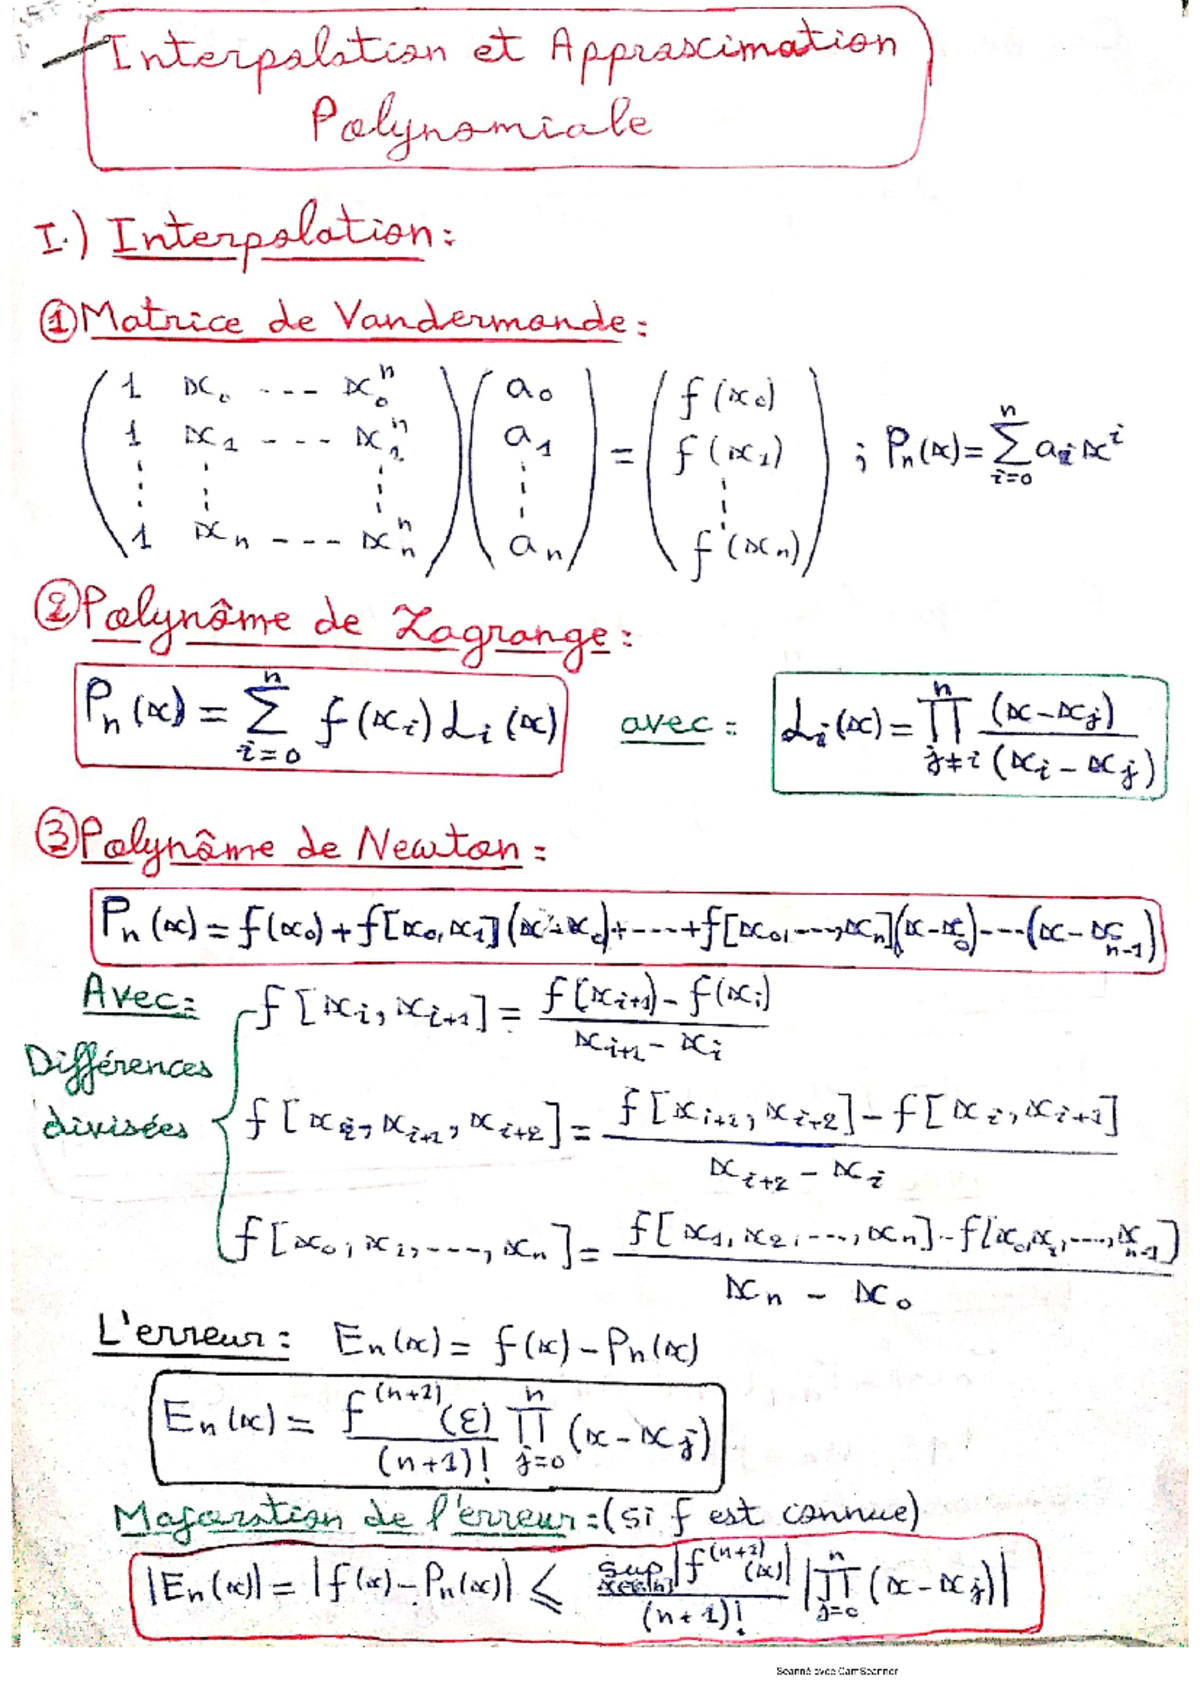 Interpolation et Approximation
Polynomiale
I.) Interpolation :
① Matrice de Vandermonde :
( 1 x₀ --- x₀ⁿ ) ( a₀ ) = ( f(x₀) )
( 1 x₁ --- x₁ⁿ ) ( a₁ ) = ( f(x₁) ) ; Pₙ(x) = ∑_{i=0}^{n} aᵢ xⁱ
( ⋮ ⋮ ⋮ ) ( ⋮ ) ( ⋮ )
( 1 xₙ --- xₙⁿ ) ( aₙ ) ( f(xₙ) )
② Polynôme de Lagrange :
Pₙ(x) = ∑_{i=0}^{n} f(xᵢ) Lᵢ(x) avec : Lᵢ(x) = ∏_{j≠i}^{n} (x-xⱼ)/(xᵢ-xⱼ)
③ Polynôme de Newton :
Pₙ(x) = f(x₀) + f[x₀, x₁](x-x₀) + ---- + f[x₀, ---, xₙ](x-x₀) --- (x-x_{n-1})
Avec : f[xᵢ, x_{i+1}] = (f(x_{i+1}) - f(xᵢ))/(x_{i+1} - xᵢ)
Différences
divisées f[xᵢ, x_{i+1}, x_{i+2}] = (f[x_{i+1}, x_{i+2}] - f[xᵢ, x_{i+1}])/(x_{i+2} - xᵢ)
f[x₀, x₁, ---, xₙ] = (f[x₁, x₂, ---, xₙ] - f[x₀, x₁, ---, x_{n-1}])/(xₙ - x₀)
L'erreur : Eₙ(x) = f(x) - Pₙ(x)
Eₙ(x) = f^{(n+1)}(ε)/(n+1)! ∏_{j=0}^{n} (x-xⱼ)
Majoration de l'erreur : (si f est connue)
|Eₙ(x)| = |f(x) - Pₙ(x)| ≤ sup |f^{(n+1)}(x)|/(n+1)! |∏_{j=0}^{n} (x-xⱼ)|
Scanné avec CamScanner